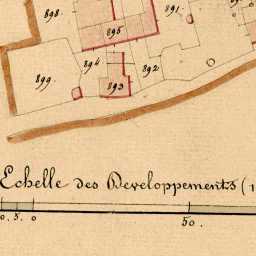 898
891
895
894
892
899
893
Echelle des Developpements (1
0. 5. 0 50.